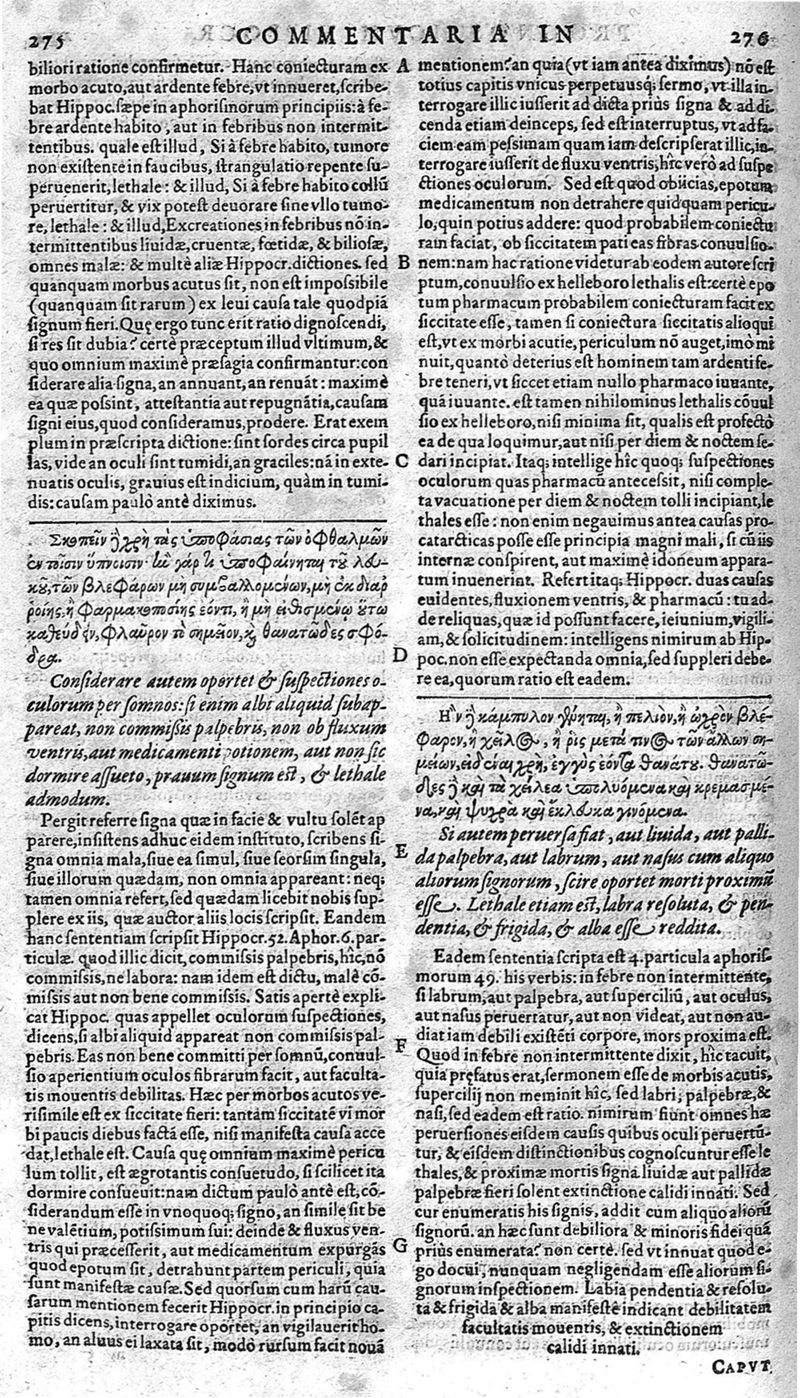 275 COMMENTARIA IN 276
biliori ratione confirmetur. Hanc coniecturam ex
morbo acuto, aut ardente febre, vt innueret, scribe-
bat Hippoc. sæpe in aphorismorum principiis: à fe-
bre ardente habito, aut in febribus non intermit-
tentibus. quale est illud, Si à febre habito, tumore
non existente in faucibus, strangulatio repente su-
peruenerit, lethale: & illud, Si à febre habito collū
peruertitur, & vix potest deuorare sine vllo tumo-
re, lethale: & illud, Excreationes in febribus nō in-
termittentibus liuidæ, cruentæ, fœtidæ, & biliosæ,
omnes malæ: & multę aliæ Hippocr. dictiones. sed
quanquam morbus acutus sit, non est impossibile
(quanquam sit rarum) ex leui causa tale quodpiā
signum fieri. Quę ergo tunc erit ratio dignoscendi,
si res sit dubia? certè præceptum illud vltimum, &
quo omnium maximè præsagia confirmantur: con
siderare alia signa, an annuant, an renuāt: maximè
ea quæ possint, attestantia aut repugnātia, causam
signi eius, quod consideramus, prodere. Erat exem
plum in præscripta dictione: sint sordes circa pupil
las, vide an oculi sint tumidi, an graciles: nā in exte-
nuatis oculis, grauius est indicium, quàm in tumi-
dis: causam paulò antè diximus.
Σκοπεῖν δὲ χρὴ τὰς ὑποφάσιας τῶν ὀφθαλμῶν
ἐν τοῖσιν ὕπνοισιν· ἢν γάρ τι ὑποφαίνηται τοῦ λευ-
κοῦ, τῶν βλεφάρων μὴ συμβαλλομένων, μὴ ἐκ διαρ
ροίης, ἢ φαρμακοποσίης ἐόντι, ἢ μὴ εἰθισμένῳ οὕτω
καθεύδειν, φλαῦρον τὸ σημεῖον, καὶ θανατῶδες σφό-
δρα.
Considerare autem oportet & suspectiones o-
culorum per somnos: si enim albi aliquid subap-
pareat, non commissis palpebris, non ob fluxum
ventris, aut medicamenti potionem, aut non sic
dormire assueto, prauum signum est, & lethale
admodum.
Pergit referre signa quæ in facie & vultu solēt ap
parere, insistens adhuc eidem instituto, scribens si-
gna omnia mala, siue ea simul, siue seorsim singula,
siue illorum quædam, non omnia appareant: neq;
tamen omnia refert, sed quædam licebit nobis sup-
plere ex iis, quæ auctor aliis locis scripsit. Eandem
hanc sententiam scripsit Hippocr. 52. Aphor. 6. par-
ticulæ. quod illic dicit, commissis palpebris, hîc, nō
commissis, ne labora: nam idem est dictu, malè cō-
missis aut non bene commissis. Satis apertè expli-
cat Hippoc. quas appellet oculorum suspectiones,
dicens, si albi aliquid appareat non commissis pal-
pebris. Eas non bene committi per somnū, conuul-
sio aperientium oculos fibrarum facit, aut faculta-
tis mouentis debilitas. Hæc per morbos acutos ve-
risimile est ex siccitate fieri: tantam siccitatē vi mor
bi paucis diebus factā esse, nisi manifesta causa acce
dat, lethale est. Causa quę omnium maximè pericu
lum tollit, est ægrotantis consuetudo, si scilicet ita
dormire consueuit: nam dictum paulò antè est, cō-
siderandum esse in vnoquoq; signo, an simile sit be
ne valētium, potissimum sui: deinde & fluxus ven-
tris qui præcesserit, aut medicamentum expurgās
quod epotum sit, detrahunt partem periculi, quia
sunt manifestæ causæ. Sed quorsum cum harū cau-
sarum mentionem fecerit Hippocr. in principio ca-
pitis dicens, interrogare oportet, an vigilauerit ho-
mo, an aluus ei laxata sit, modò rursum facit nouā
A mentionem? an quia (vt iam antea diximus) nō est
totius capitis vnicus perpetuusq; sermo, vt illa in-
terrogare illic iusserit ad dicta priùs signa & ad di-
cenda etiam deinceps, sed est interruptus, vt ad fa-
ciem eam pessimam quam iam descripserat illic, in-
terrogare iusserit de fluxu ventris, hîc verò ad suspe
ctiones oculorum. Sed est quod obiicias, epotum
medicamentum non detrahere quidquam pericu-
lo, quin potius addere: quod probabilem coniectu
ram faciat, ob siccitatem pati eas fibras conuulsio-
B nem: nam hac ratione videtur ab eodem autore scri
ptum, conuulsio ex helleboro lethalis est: certè epo
tum pharmacum probabilem coniecturam facit ex
siccitate esse, tamen si coniectura siccitatis alioqui
est, vt ex morbi acutie, periculum nō auget, imò mi
nuit, quantò deterius est hominem tam ardenti fe-
bre teneri, vt siccet etiam nullo pharmaco iuuante,
quā iuuante. est tamen nihilominus lethalis cōuul
sio ex helleboro, nisi minima sit, qualis est profectò
ea de qua loquimur, aut nisi per diem & noctem se-
C dari incipiat. Itaq; intellige hîc quoq; suspectiones
oculorum quas pharmacū antecessit, nisi comple-
ta vacuatione per diem & noctem tolli incipiant, le
thales esse: non enim negauimus antea causas pro-
catarcticas posse esse principia magni mali, si cū iis
internæ conspirent, aut maximè idoneum appara-
tum inuenerint. Refert itaq; Hippocr. duas causas
euidentes, fluxionem ventris, & pharmacū: tu ad-
de reliquas, quæ id possunt facere, ieiunium, vigili-
am, & solicitudinem: intelligens nimirum ab Hip-
D poc. non esse expectanda omnia, sed suppleri debe-
re ea, quorum ratio est eadem.
Ἢν δὲ κάμπυλον γένηται, ἢ πελιὸν, ἢ ὠχρὸν βλέ-
φαρον, ἢ χεῖλος, ἢ ῥὶς μετά τινος τῶν ἄλλων ση-
μείων, εἰδέναι χρὴ, ἐγγὺς ἐόντα θανάτου. θανατῶ-
δες δὲ καὶ τὰ χείλεα ἀπολυόμενα καὶ κρεμασμέ-
να, καὶ ψυχρὰ καὶ ἔκλευκα γινόμενα.
Si autem peruersa fiat, aut liuida, aut palli-
E da palpebra, aut labrum, aut nasus cum aliquo
aliorum signorum, scire oportet morti proximū
esse. Lethale etiam est, labra resoluta, & pen-
dentia, & frigida, & alba esse reddita.
Eadem sententia scripta est 4. particula aphoris
morum 49. his verbis: in febre non intermittente,
si labrum, aut palpebra, aut supercilium, aut oculus,
aut nasus peruertatur, aut non videat, aut non au-
diat iam debili existēti corpore, mors proxima est.
F Quod in febre non intermittente dixit, hîc tacuit,
quia pręfatus erat, sermonem esse de morbis acutis,
supercilij non meminit hîc, sed labri, palpebræ, &
nasi, sed eadem est ratio. nimirum fiunt omnes hæ
peruersiones eisdem causis quibus oculi peruertū-
tur, & eisdem distinctionibus cognoscuntur esse le
thales, & proximæ mortis signa. liuidæ aut pallidæ
palpebræ fieri solent extinctione calidi innati. Sed
cur enumeratis his signis, addit cum aliquo aliorū
signorū. an hæc sunt debiliora & minoris fidei quā
G priùs enumerata? non certè. sed vt innuat quod e-
go docui, nunquam negligendam esse aliorum si-
gnorum inspectionem. Labia pendentia & resolu-
ta & frigida & alba manifestè indicant debilitatem
facultatis mouentis, & extinctionem
calidi innati.
CAPVT